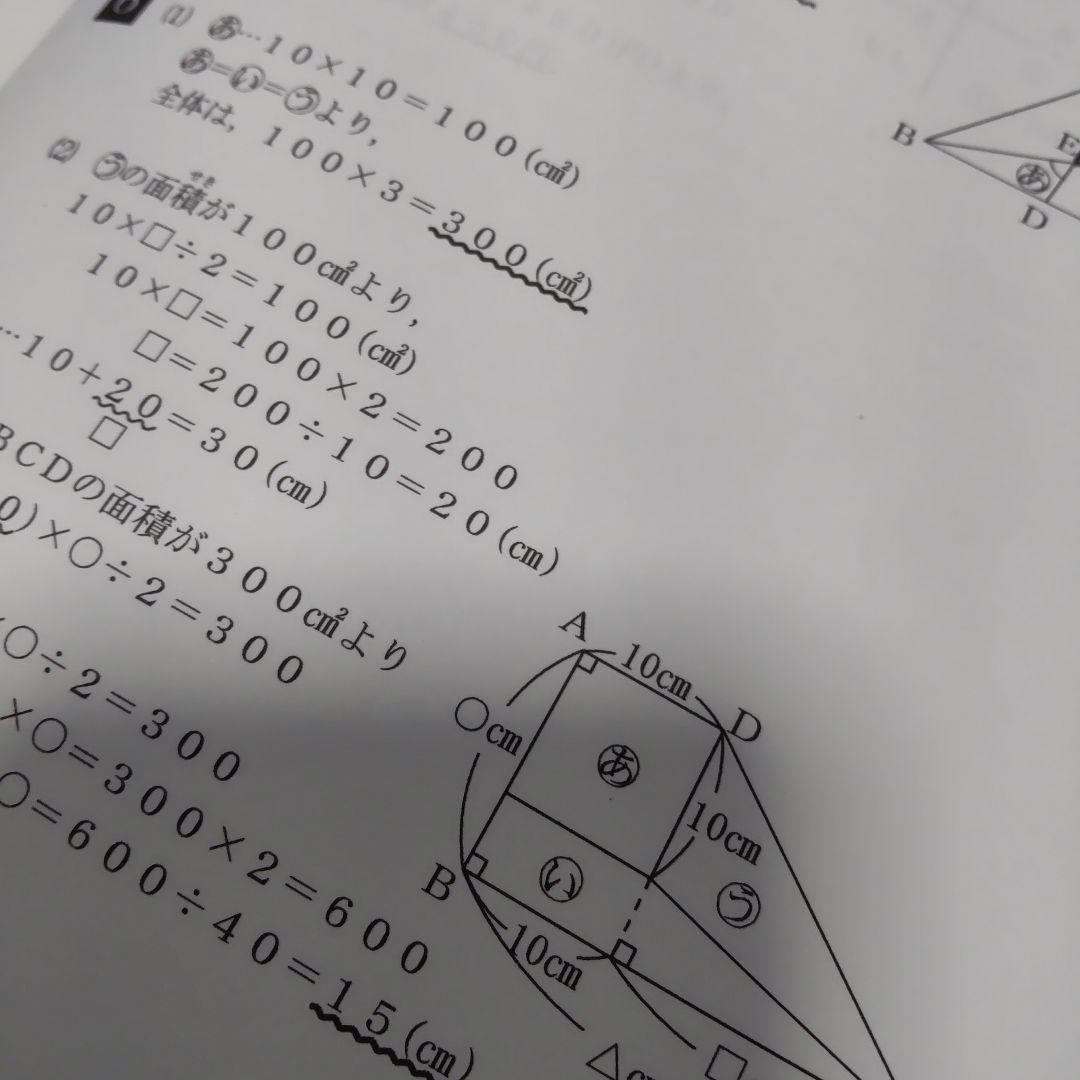 (1) あ…10×10=100(cm²)
あ=い=うより,
全体は, 100×3=300(cm²)
(2) うの面積が100cm²より,
せき
10×□÷2=100(cm²)
10×□=100×2=200
□=200÷10=20(cm)
…10+20=30(cm)
□
BCDの面積が300cm²より
0)×○÷2=300
×○÷2=300
×○=300×2=600
○=600÷40=15(cm)
A
10cm
D
○cm
あ
10cm
B
い
う
10cm
△c
□
B
E
あ
D